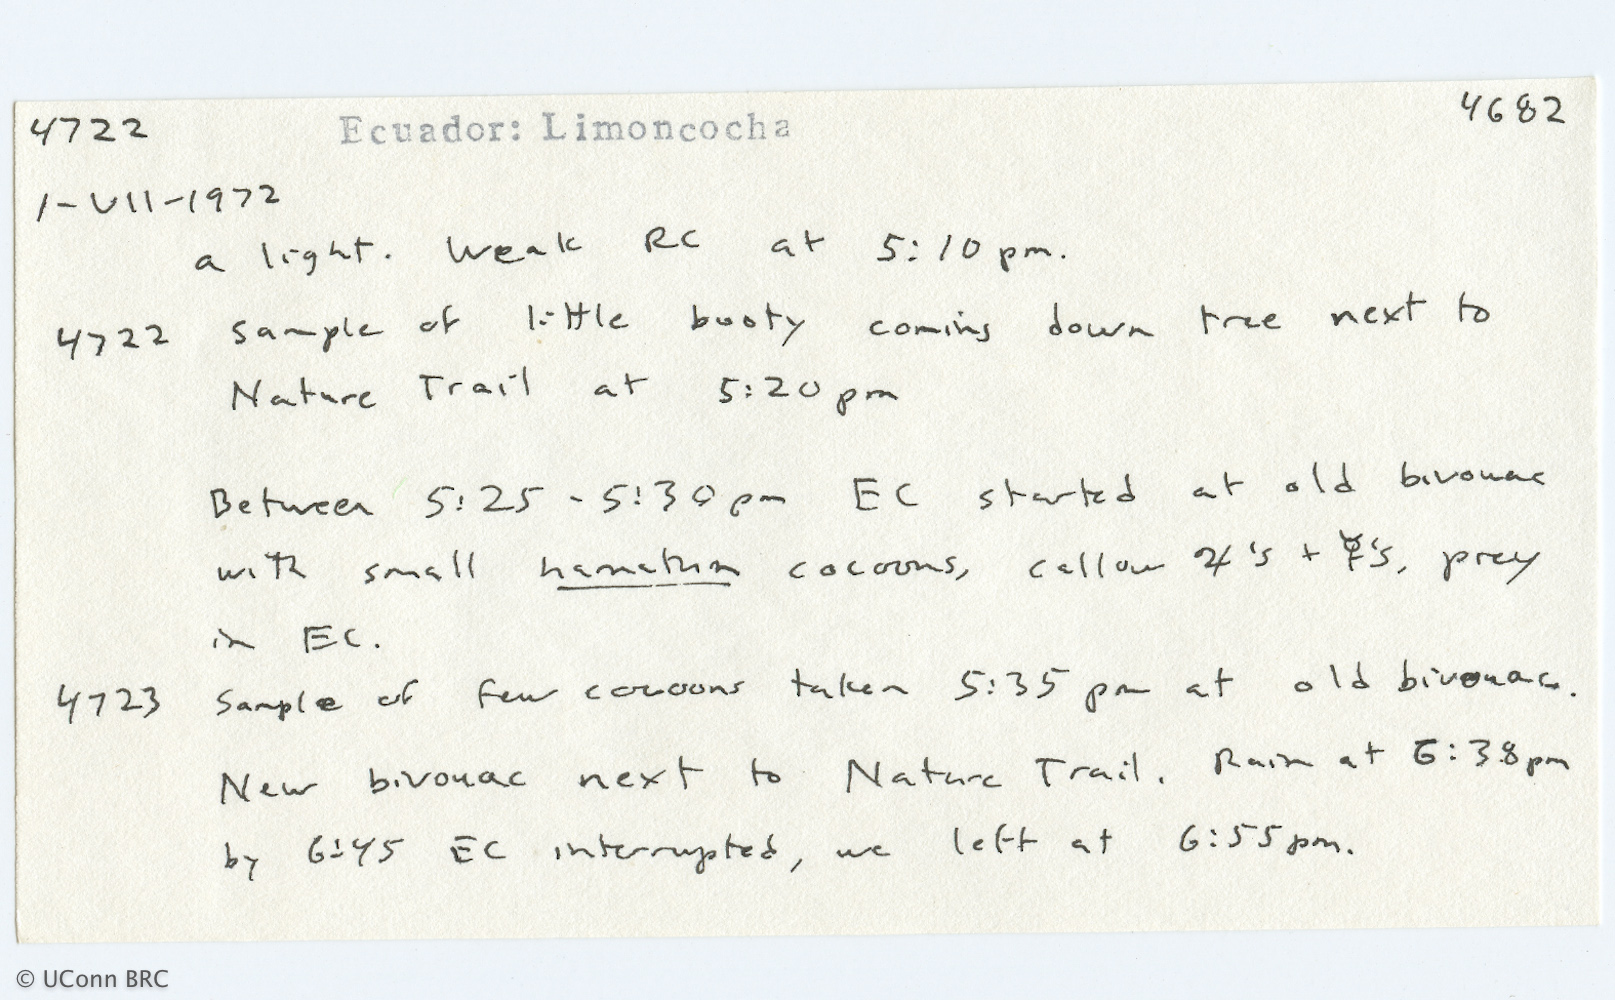 4722 Ecuador: Limoncocha 4682
1-VII-1972
a light. Weak RC at 5:10 pm.
4722 Sample of little booty coming down tree next to
Nature Trail at 5:20 pm
Between 5:25 - 5:30 pm EC started at old bivouac
with small hamatum cocoons, callow ♃'s + ☿'s, prey
in EC.
4723 Sample of few cocoons taken 5:35 pm at old bivouac.
New bivouac next to Nature Trail. Rain at 6:38 pm
by 6:45 EC interrupted, we left at 6:55 pm.
© UConn BRC